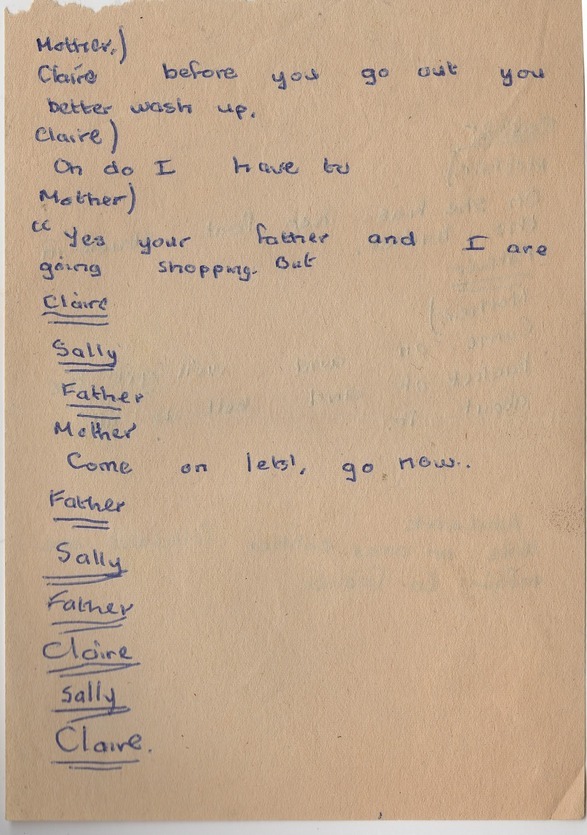 Mother.)
Claire before you go out you
better wash up.
Claire)
Oh do I have to
Mother)
“ Yes your father and I are
going shopping. But
Claire
Sally
Father
Mother
Come on lets', go now..
Father
Sally
Father
Claire
Sally
Claire.